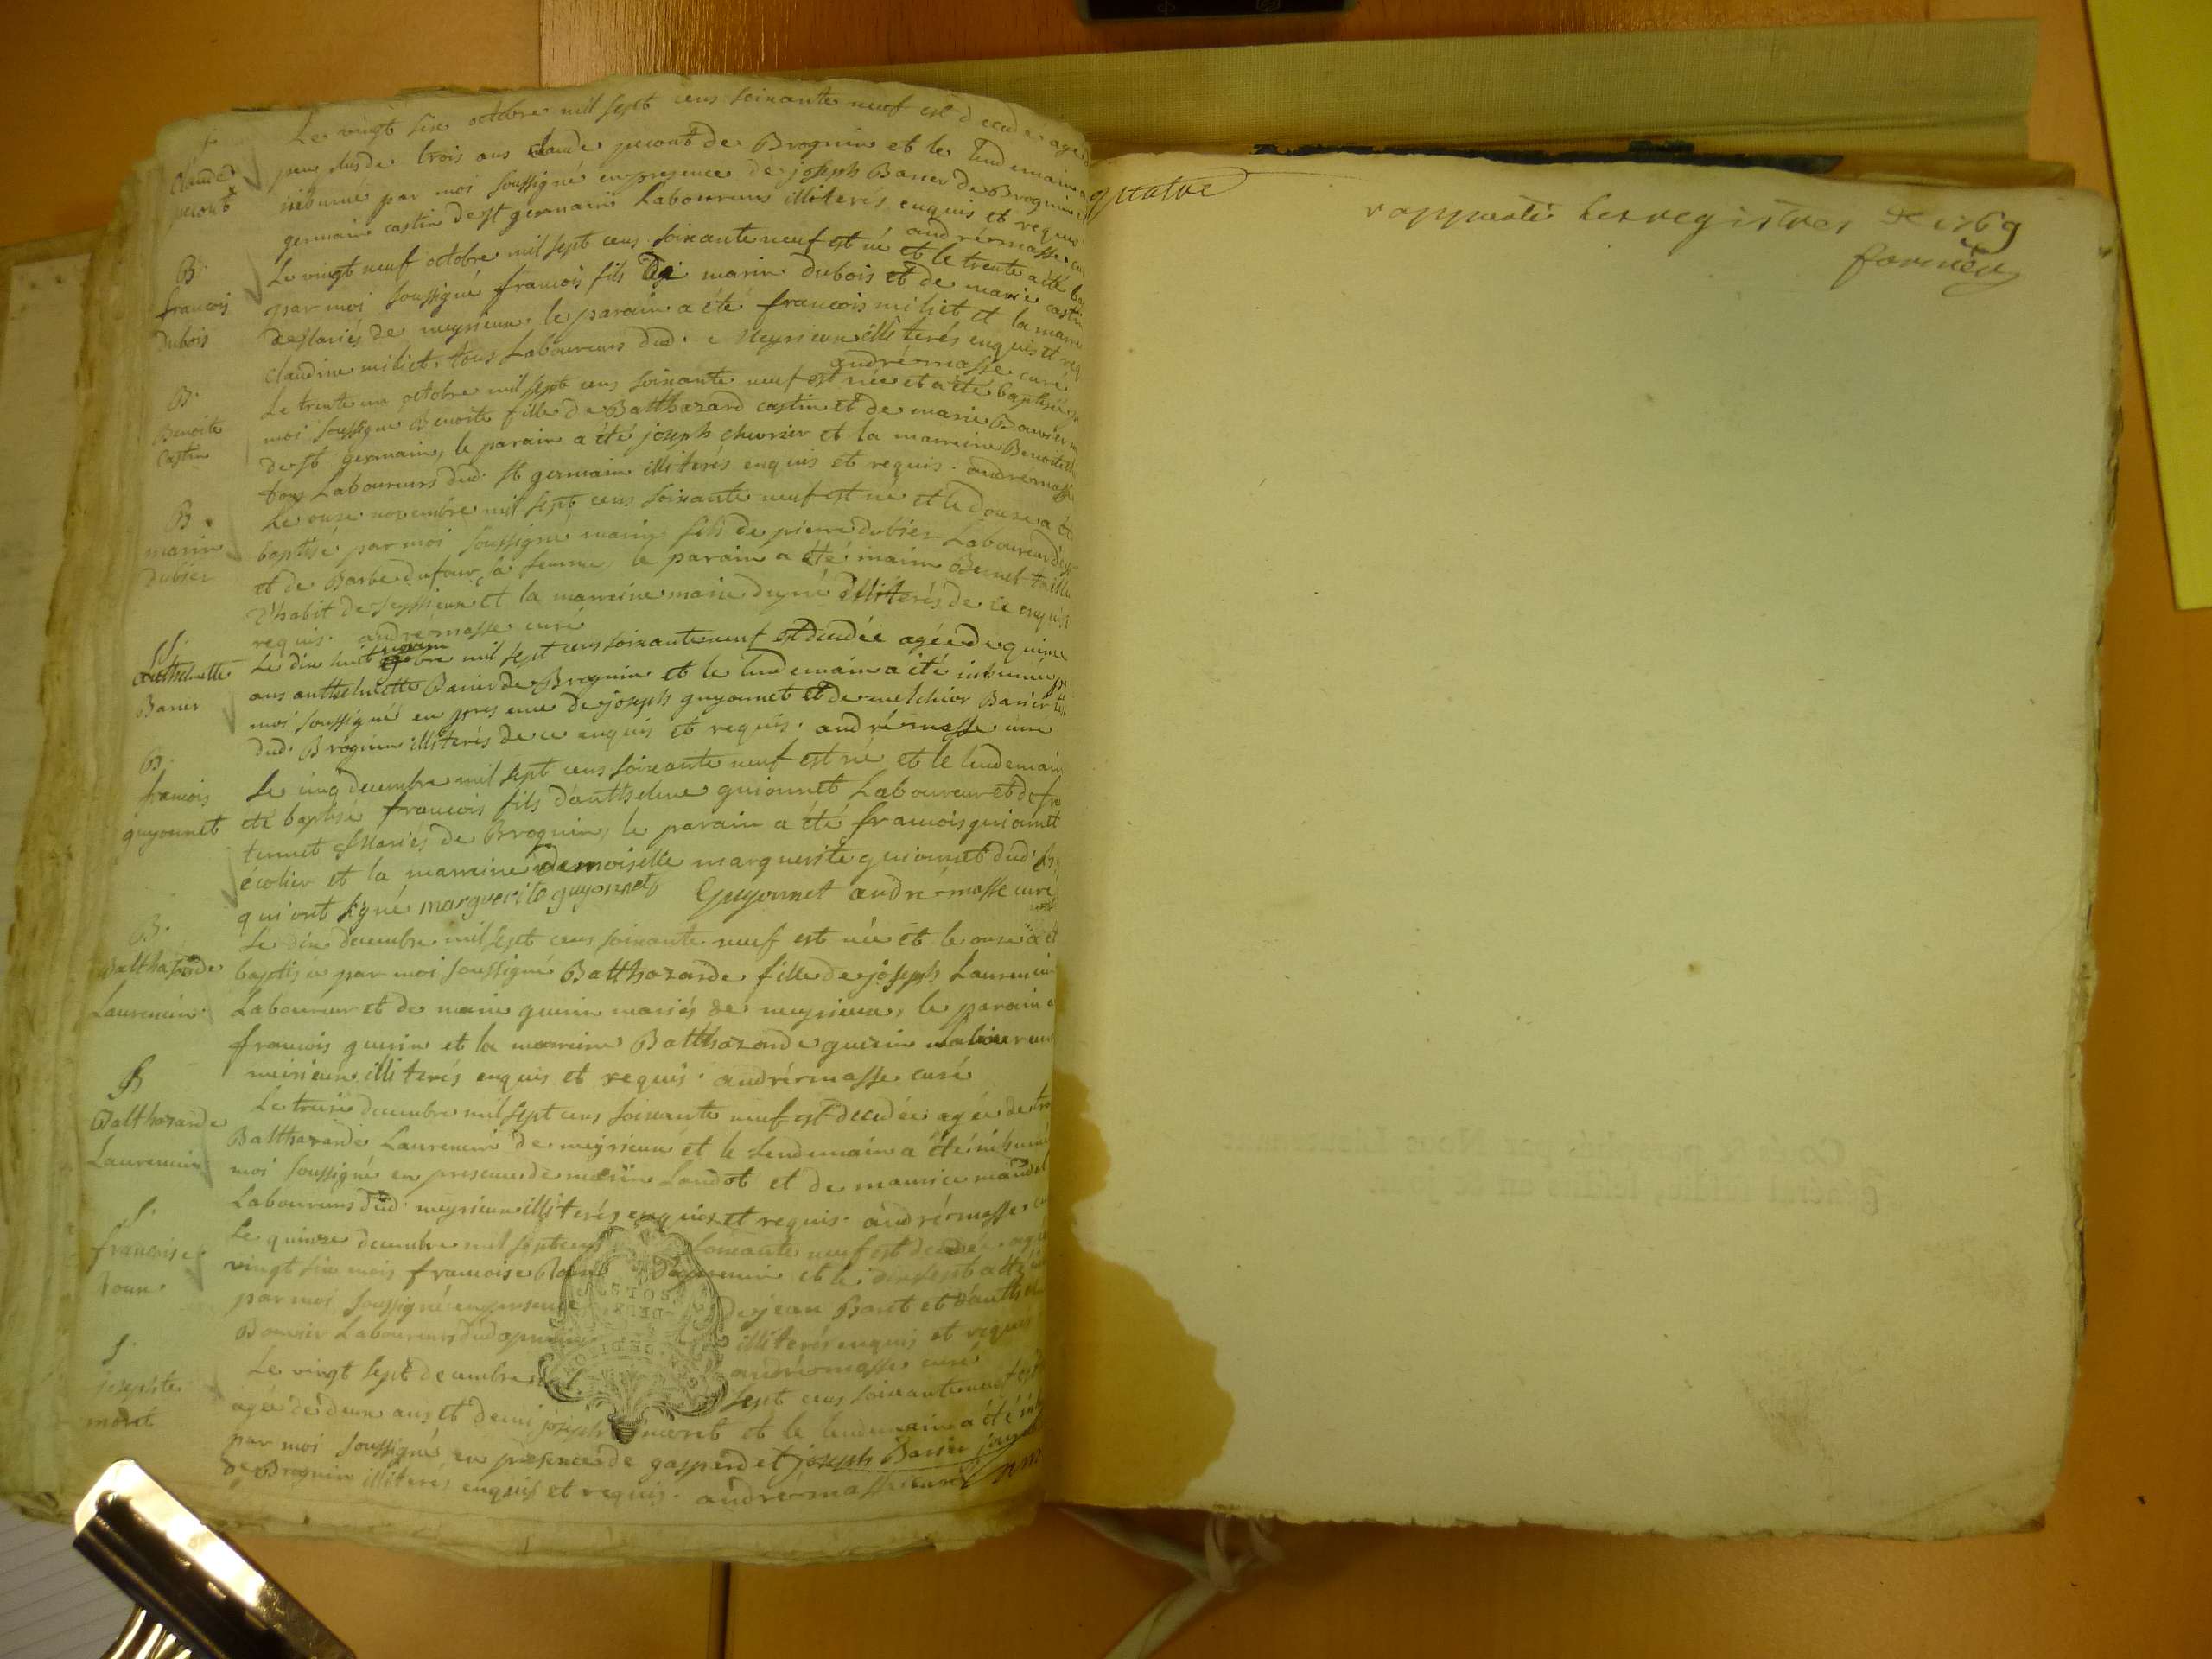 Le vingt six octobre mil sept cens soixante neuf est decedé agé
S.
Claude
pecout
peu plus de trois ans claude pecout de Brognin et le lendemain a
inhumé par moi soussigné en presence de joseph Barier de Brognin
germain castin de st germain Laboureurs illiterés enquis et requis
andré masse cu
B.
francois
Dubois
Le vingt neuf octobre mil sept cens soixante neuf est né et le trente a été b
par moi soussigné francois fils de marin Dubois et de marie castin
mariés de meyrieux, le parain a été francois miliet et la marre
claudine miliet, tous Laboureurs dud. Meyrieux illiterés enquis et req
andré masse curé
B.
Benoite
Castin
Le trente un octobre mil sept cens soixante neuf est née et a été baptisée p
moi soussigné Benoite fille de Balthazard castin et de marie Bouvier m
de st germain, le parain a été joseph chevrier et la marreine Benoite
tous Laboureurs dud. st germain illiterés enquis et requis. andré masse
B.
marin
Dubier
Le onze novembre mil sept cens soixante neuf est né et le douze a ét
baptisé par moi soussigné marin fils de pierre dubier Laboureur
et de Barbe dufour sa femme, le parain a été marin Bernel taille
d'habit de seyssieux et la marreine marie illiterés de ce enquis
requis. andré masse curé
S.
Anthelmette
Barier
Le dix huit novem mil sept cens soixante neuf est decedée agée de quinze
ans anthelmette Barier de Brognin et le lendemain a été inhumée p
moi soussigné en presence de joseph guyonnet et de melchior Barier
dud. Brognin illiterés de ce enquis et requis. andré masse curé
B.
francois
guyonnet
Le cinq decembre mil sept cens soixante neuf est né et le lendemain
eté baptisé francois fils d'anthelme guionnet Laboureur et de fra
mariés de Brognin, le parain a été francois guionnet
écolier et la marreine demoiselle marguerite guionnet dud. B
qui ont signé marguerite guyonnet Guyonnet andré masse curé
B.
Balthasarde
Laurencin
Le dix decembre mil sept cens soixante neuf est née et le onze a ét
baptisée par moi soussigné Balthazarde fille de joseph Laurencin
Laboureur et de marie guerin mariés de meyrieux, le parain a
francois guerin et la marreine Balthazarde guerin Laboureurs
meirieux illiterés enquis et requis. andré masse curé
S
Balthazarde
Laurencin
Le treize decembre mil sept cens soixante neuf est decedée agée de tro
Balthazarde Laurencin de meyrieux et le lendemain a été inhumé
moi soussigné en presence de marin Landot et de maurice
Laboureurs dud. meyrieux illiterés enquis et requis. andré masse cu
S.
francoise
Le quinze decembre mil sept cens soixante neuf est decedée agé
vingt six mois francoise et le dix sept a été
par moi soussigné en presence de jean Boret et d'anthel
Bouvier Laboureurs dud. illiterés enquis et requis
andré masse curé
S.
josephte
moret
Le vingt sept decembre mil sept cens soixante neuf est
agée de deux ans et demi joseph moret et le lendemain a été inh
par moi soussigné en presence de gasperd et joseph Barier
de Brognin illiterés enquis et requis. andré masse curé
quatre
rapporté les registres de 1769